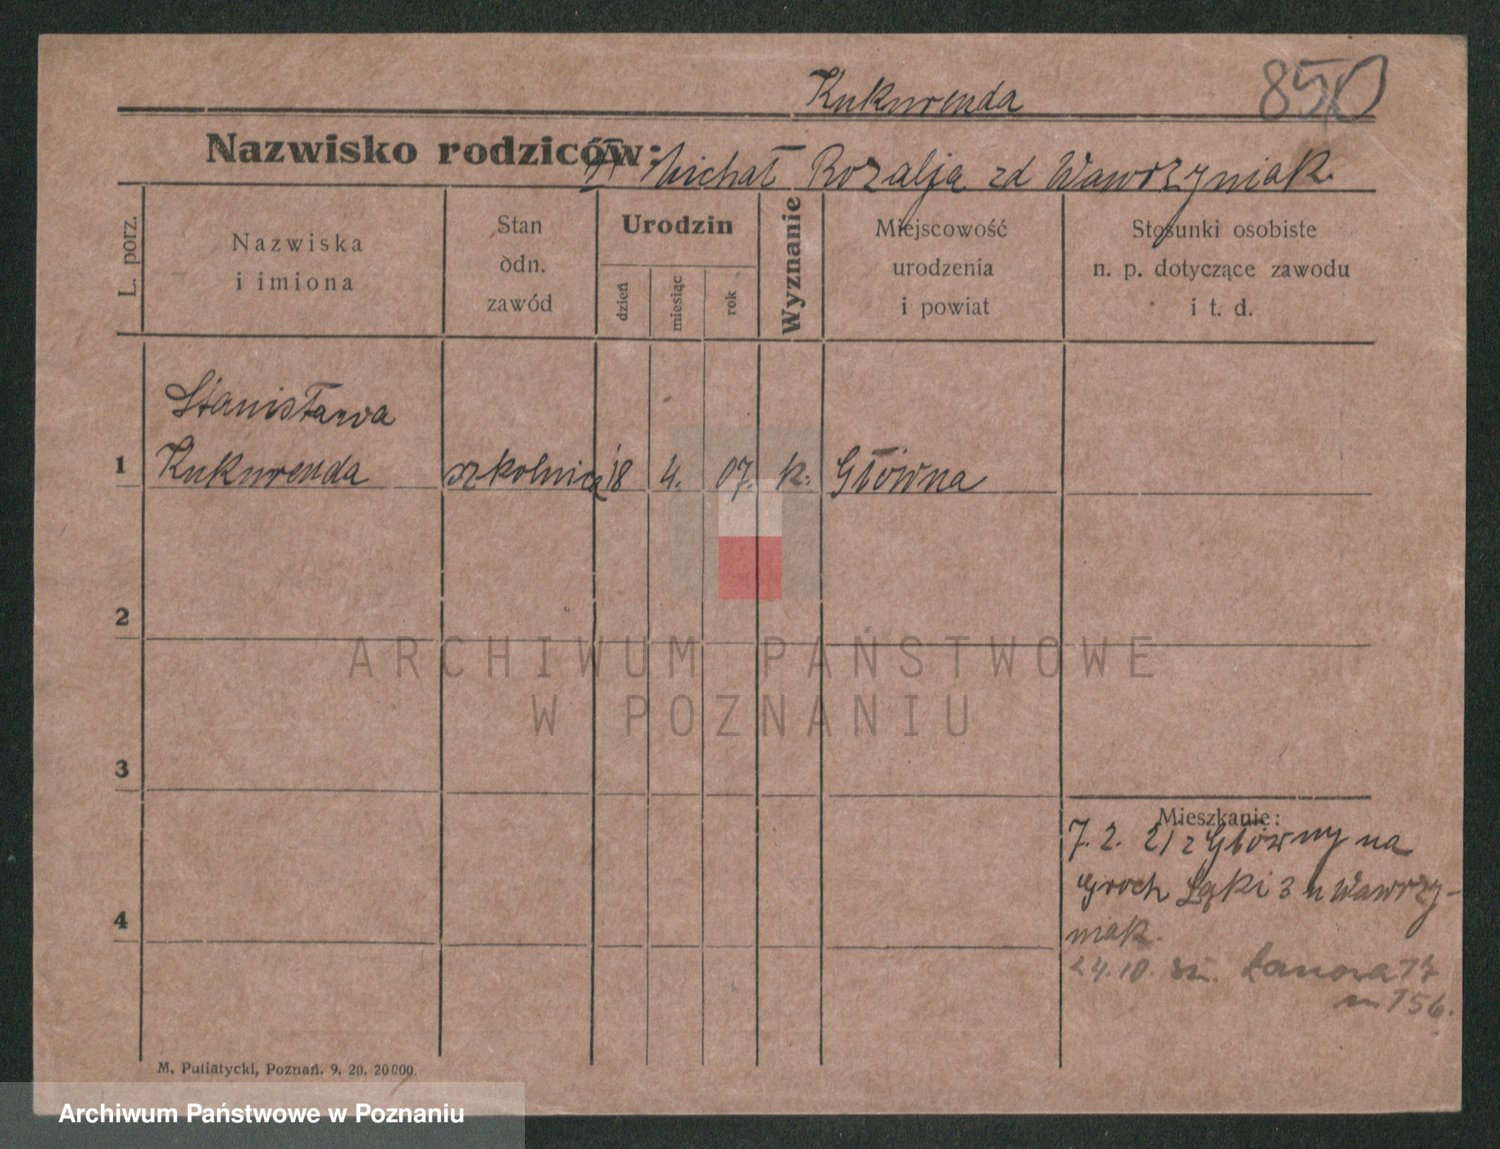 Kukurenda
850
Nazwisko rodziców: Michał Rozalja zd Wawrzyniak
L. porz.
Nazwiska
i imiona
Stan
odn.
zawód
Urodzin
dzień
miesiąc
rok
Wyznanie
Miejscowość
urodzenia
i powiat
Stosunki osobiste
n. p. dotyczące zawodu
i t. d.
Stanisława
1 Kukurenda szkolnica 18 4. 07. k. Główna
2
3
4
Mieszkanie:
7. 2. 21 z Główny na
Groch Łąki 3 u Wawrzy-
niak.
24.10.
ARCHIWUM PAŃSTWOWE
W POZNANIU
M. Putiatycki, Poznań. 9. 20. 20000.
Archiwum Państwowe w Poznaniu